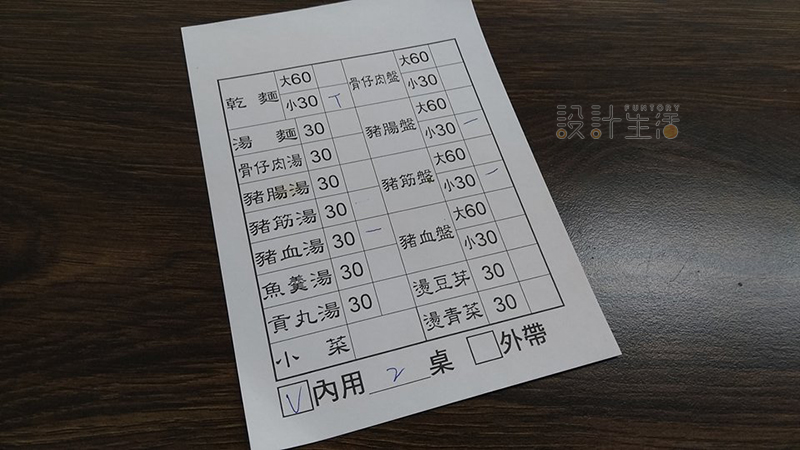 乾麵 大60 骨仔肉盤 大60
小30 丅 小30
湯麵 30 豬腸盤 大60
骨仔肉湯 30 小30 一
豬腸湯 30 豬筋盤 大60
豬筋湯 30 小30 一
豬血湯 30 一 豬血盤 大60
魚羹湯 30 小30
貢丸湯 30 燙豆芽 30
小菜 燙青菜 30
V 內用 2 桌 外帶
FUNTORY
設計生活